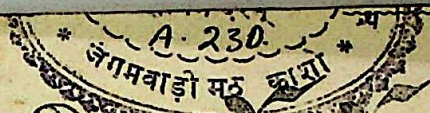 A. 230.
* जंगमवाड़ो मठ काशी *